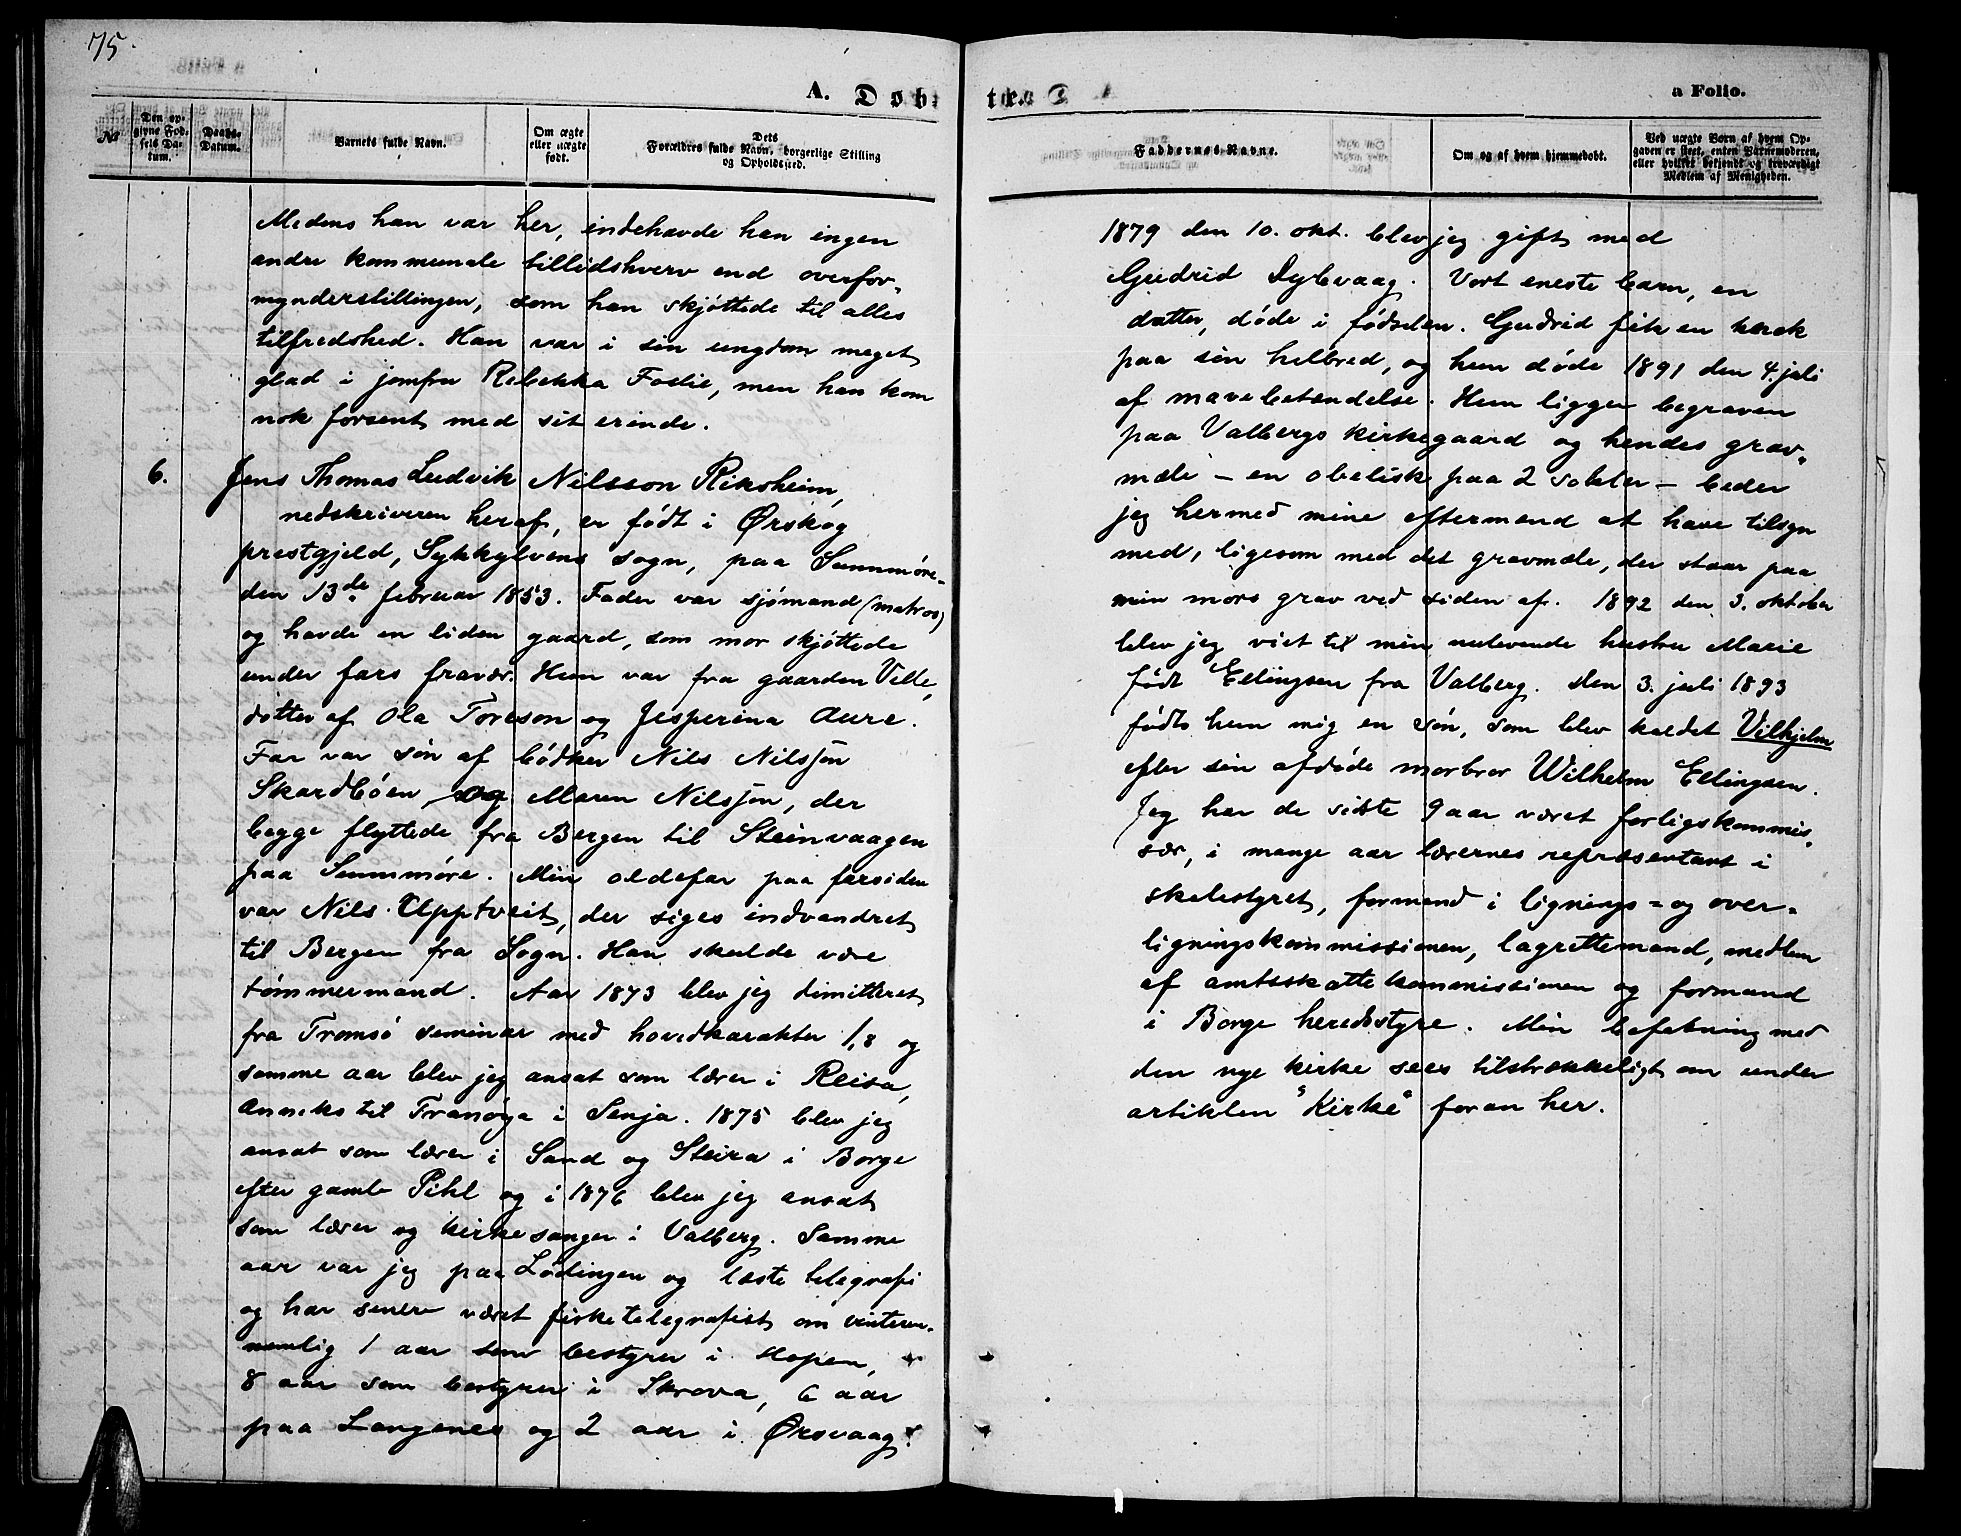 75.
A. Døb-
№
Den op-
givne Fød-
sels Da-
tum.
Daabs-
Datum.
Barnets fulde Navn.
Om ægte
eller uægte
født.
Dets
Forældres fulde Navn, borgerlige Stilling
og Opholdssted.
Medens han var her, indehavde han ingen
andre kommunale tillidshverv end overfor-
mynderstillingen, som han skjøttede til alles
tilfredshed. Han var i sin ungdom meget
glad i jomfru Rebekka Foslie, men han kom
nok forsent med sit erinde.
6. Jens Thomas Ludvik Nilsson Riksheim,
nedskriveren heraf, er født i Ørskog
prestgjeld, Sykkylvens sogn, paa Sunnmøre
den 13de februar 1853. Fader var sjømand (matros)
og havde en liden gaard, som mor skjøttede
under fars fravær. Hun var fra gaarden Velle,
dotter af Ola Toreson og Jesperina Aure.
Far var søn af bødker Nils Nilsson
Skardbøen og Maren Nilsson, der
begge flyttede fra Bergen til Steinvaagen
paa Sunnmøre. Min oldefar paa farsiden
var Nils Upptveit, der siges indvandret
til Bergen fra Sogn. Han skulde være
tømmermand. Aar 1873 blev jeg dimitteret
fra Tromsø seminar med hovedkarakter 1,8 og
samme aar blev jeg ansat som lærer i Reisa,
anneks til Tranøya i Senja. 1875 blev jeg
ansat som lærer i Sand og Steira i Borge
efter gamle Pihl og i 1876 blev jeg ansat
som lærer og kirkesanger i Valberg. Samme
aar var jeg paa Lødingen og læste telegrafi
og har senere været fisketelegrafist om vinteren.
nemlig 1 aar som bestyrer i Hopen,
8 aar som bestyrer i Skrova, 6 aar
paa Langenes og 2 aar i Ørsvaag.
te.
a Folio.
Faddernes Navne.
Om og af hvem hjemmedøbt.
Ved uægte Børn af hvem Op-
gaven er skeet, enten Barnemoderen,
eller hvilket bekjendt og troværdigt
Medlem af Menigheden.
1879 den 10. okt. blev jeg gift med
Gudrid Dybvaag. Vort eneste barn, en
datter, døde i fødselen. Gudrid fik en knæk
paa sin helbred, og hun døde 1891 den 4. juli
af mavebetændelse. Hun ligger begraven
paa Valbergs kirkegaard og hendes grav-
mæle – en obelisk paa 2 sokler – beder
jeg hermed mine eftermænd at have tilsyn
med, ligesom med det gravmæle, der staar paa
min mors grav ved siden af. 1892 den 3. oktober
blev jeg viet til min nulevende hustru Marie
født Ellingsen fra Valberg. Den 3. juli 1893
fødte hun mig en søn, som blev kaldet Vilhjelm
efter sin afdøde morbror Wilhelm Ellingsen.
Jeg har de sidste 9 aar været forligskommis-
sær, i mange aar lærernes repræsentant i
skolestyret, formand i lignings- og over-
ligningskommissionen, lagrettemand, medlem
af amtsskattekommissionen og formand
i Borge heredsstyre. Min befatning med
den nye kirke sees tilstrækkeligt om under
artiklen "Kirke" foran her.